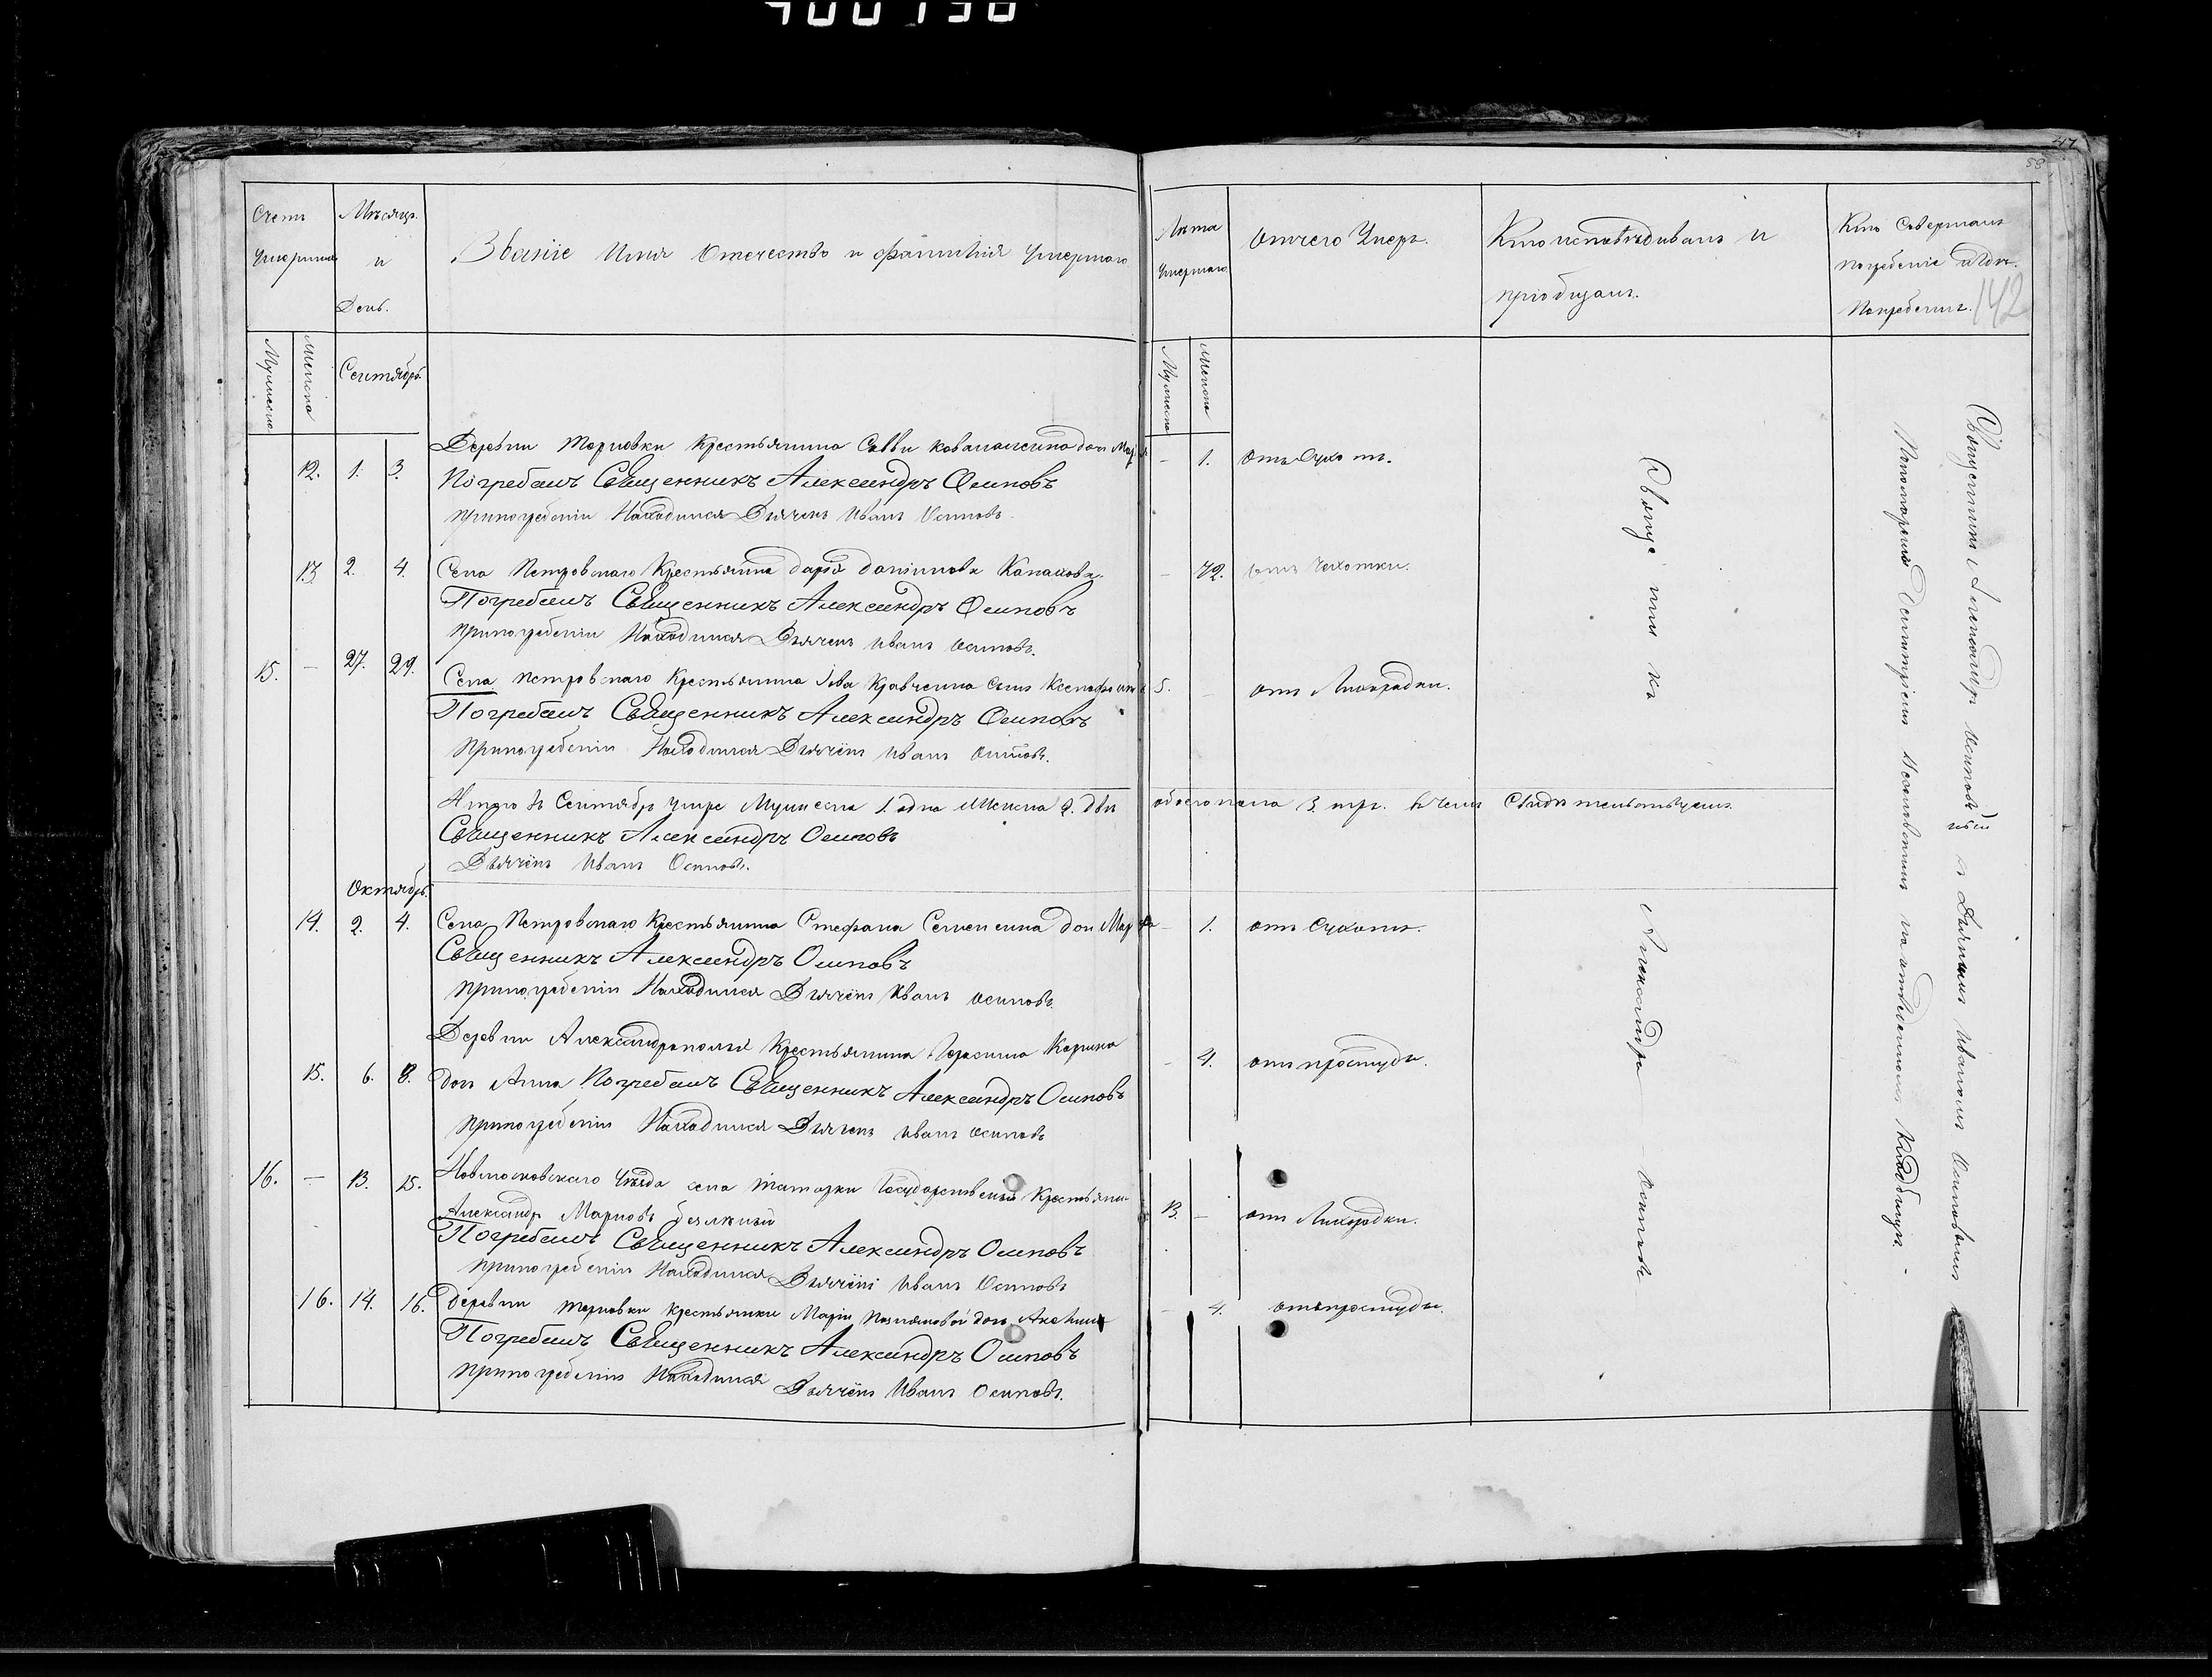 47
58
142
Счетъ Умершихъ
Мѣсяцъ и День.
Званіе Имя Отечество и фамилія Умершаго
Лѣта Умершаго
Отчего Умеръ.
Кто исповѣдывалъ и пріобщалъ.
Кто Совершалъ погребеніе и Гдѣ Погребенъ.
Мужеска
Женска
Сентябрь
Мужеска
Женска
12. 1. 3. Деревни Терновки Крестьянина Саввы доч
— 1. Отъ Сухотъ.
Погребалъ Священникъ Александръ Осиповъ
При погребеніи Находился Дьячекъ Иванъ Осиповъ.
13 2. 4. Села Петровскаго Крестьянка
— 72. отъ Чахотки.
Погребалъ Священникъ Александръ Осиповъ
При погребеніи Находился Дьячекъ Иванъ Осиповъ.
15. — 27. 29. Села Петровскаго Крестьянина Іова Кравченка сынъ Ксенофонтъ
5. — отъ Лихорадки.
Погребалъ Священникъ Александръ Осиповъ
При погребеніи Находился Дьячекъ Иванъ Осиповъ.
Итого въ Сентябрѣ умре Мужеска 1. одна Женска 2. двѣ обоего пола 3. тре. въ чемъ Свидѣтельствуемъ.
Священникъ Александръ Осиповъ
Дьячекъ Иванъ Осиповъ.
Октябрь.
14. 2. 4. Села Петровскаго Крестьянина Стефана доч
— 1. отъ Сухотъ.
Священникъ Александръ Осиповъ
При погребеніи Находился Дьячекъ Иванъ Осиповъ.
15. 6. 8. Деревни Крестьянина Герасима
— 4. отъ простуды.
доч Анна Погребалъ Священникъ Александръ Осиповъ
При погребеніи Находился Дьячекъ Иванъ Осиповъ
16. — 13. 15. Новомосковскаго Уѣзда села Государственный Крестьянинъ
13. — отъ Лихорадки.
Александръ Марковъ
Погребалъ Священникъ Александръ Осиповъ
При погребеніи Находился Дьячекъ Иванъ Осиповъ
16. 14. 16. Деревни Терновки Крестьянки Маріи доч
— 4. отъ простуды.
Погребалъ Священникъ Александръ Осиповъ
При погребеніи Находился Дьячекъ Иванъ Осиповъ.
Священника
Александра Осиповъ
Священникъ Александръ Осиповъ съ Дьячкомъ Иваномъ Осиповымъ и
Пономаремъ на отведенномъ Кладбищѣ.